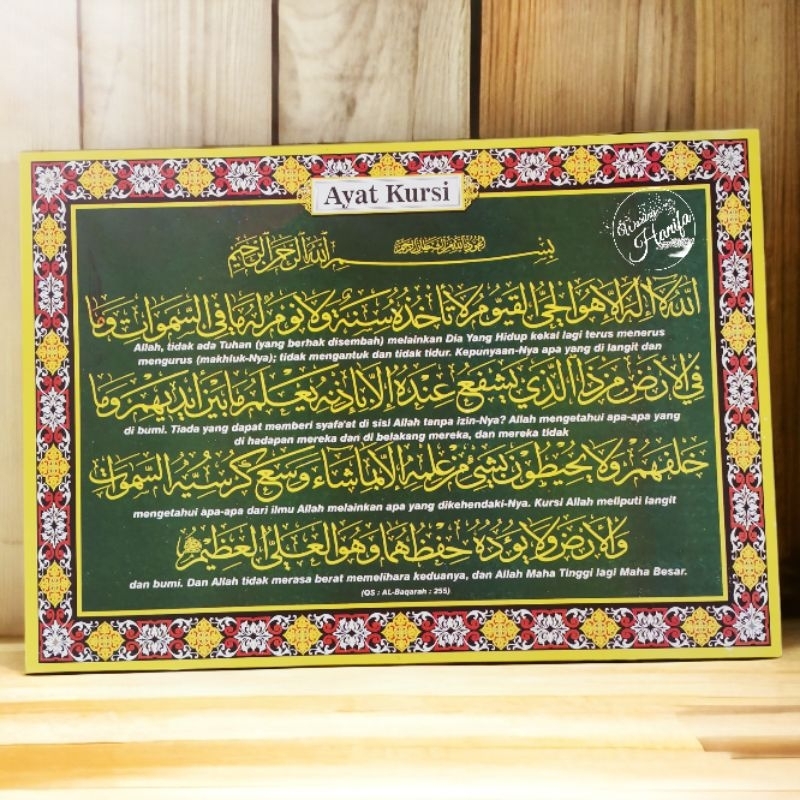 Ayat Kursi
Hanifa
أعوذ بالله من الشيطان الرجيم
بسم الله الرحمن الرحيم
الله لا إله إلا هو الحي القيوم لا تأخذه سنة ولا نوم له ما في السموات وما
Allah, tidak ada Tuhan (yang berhak disembah) melainkan Dia Yang Hidup kekal lagi terus menerus
mengurus (makhluk-Nya); tidak mengantuk dan tidak tidur. Kepunyaan-Nya apa yang di langit dan
في الأرض من ذا الذي يشفع عنده إلا بإذنه يعلم ما بين أيديهم وما
di bumi. Tiada yang dapat memberi syafa'at di sisi Allah tanpa izin-Nya? Allah mengetahui apa-apa yang
di hadapan mereka dan di belakang mereka, dan mereka tidak
خلفهم ولا يحيطون بشيء من علمه إلا بما شاء وسع كرسيه السموات
mengetahui apa-apa dari ilmu Allah melainkan apa yang dikehendaki-Nya. Kursi Allah meliputi langit
والأرض ولا يؤده حفظهما وهو العلي العظيم
dan bumi. Dan Allah tidak merasa berat memelihara keduanya, dan Allah Maha Tinggi lagi Maha Besar.
(QS : AL-Baqarah : 255)